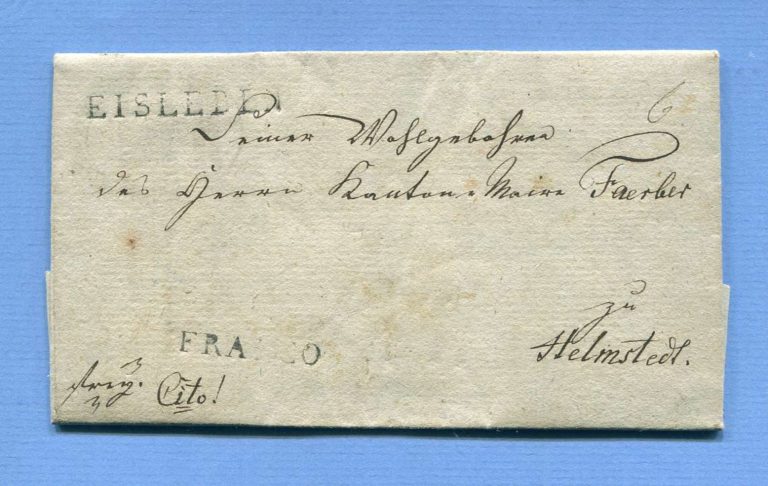 EISLEBEN
6
Seiner Wohlgebohren
des Herrn Kanton-Maire Faerber
zu
Helmstedt.
FRANCO
Cito!